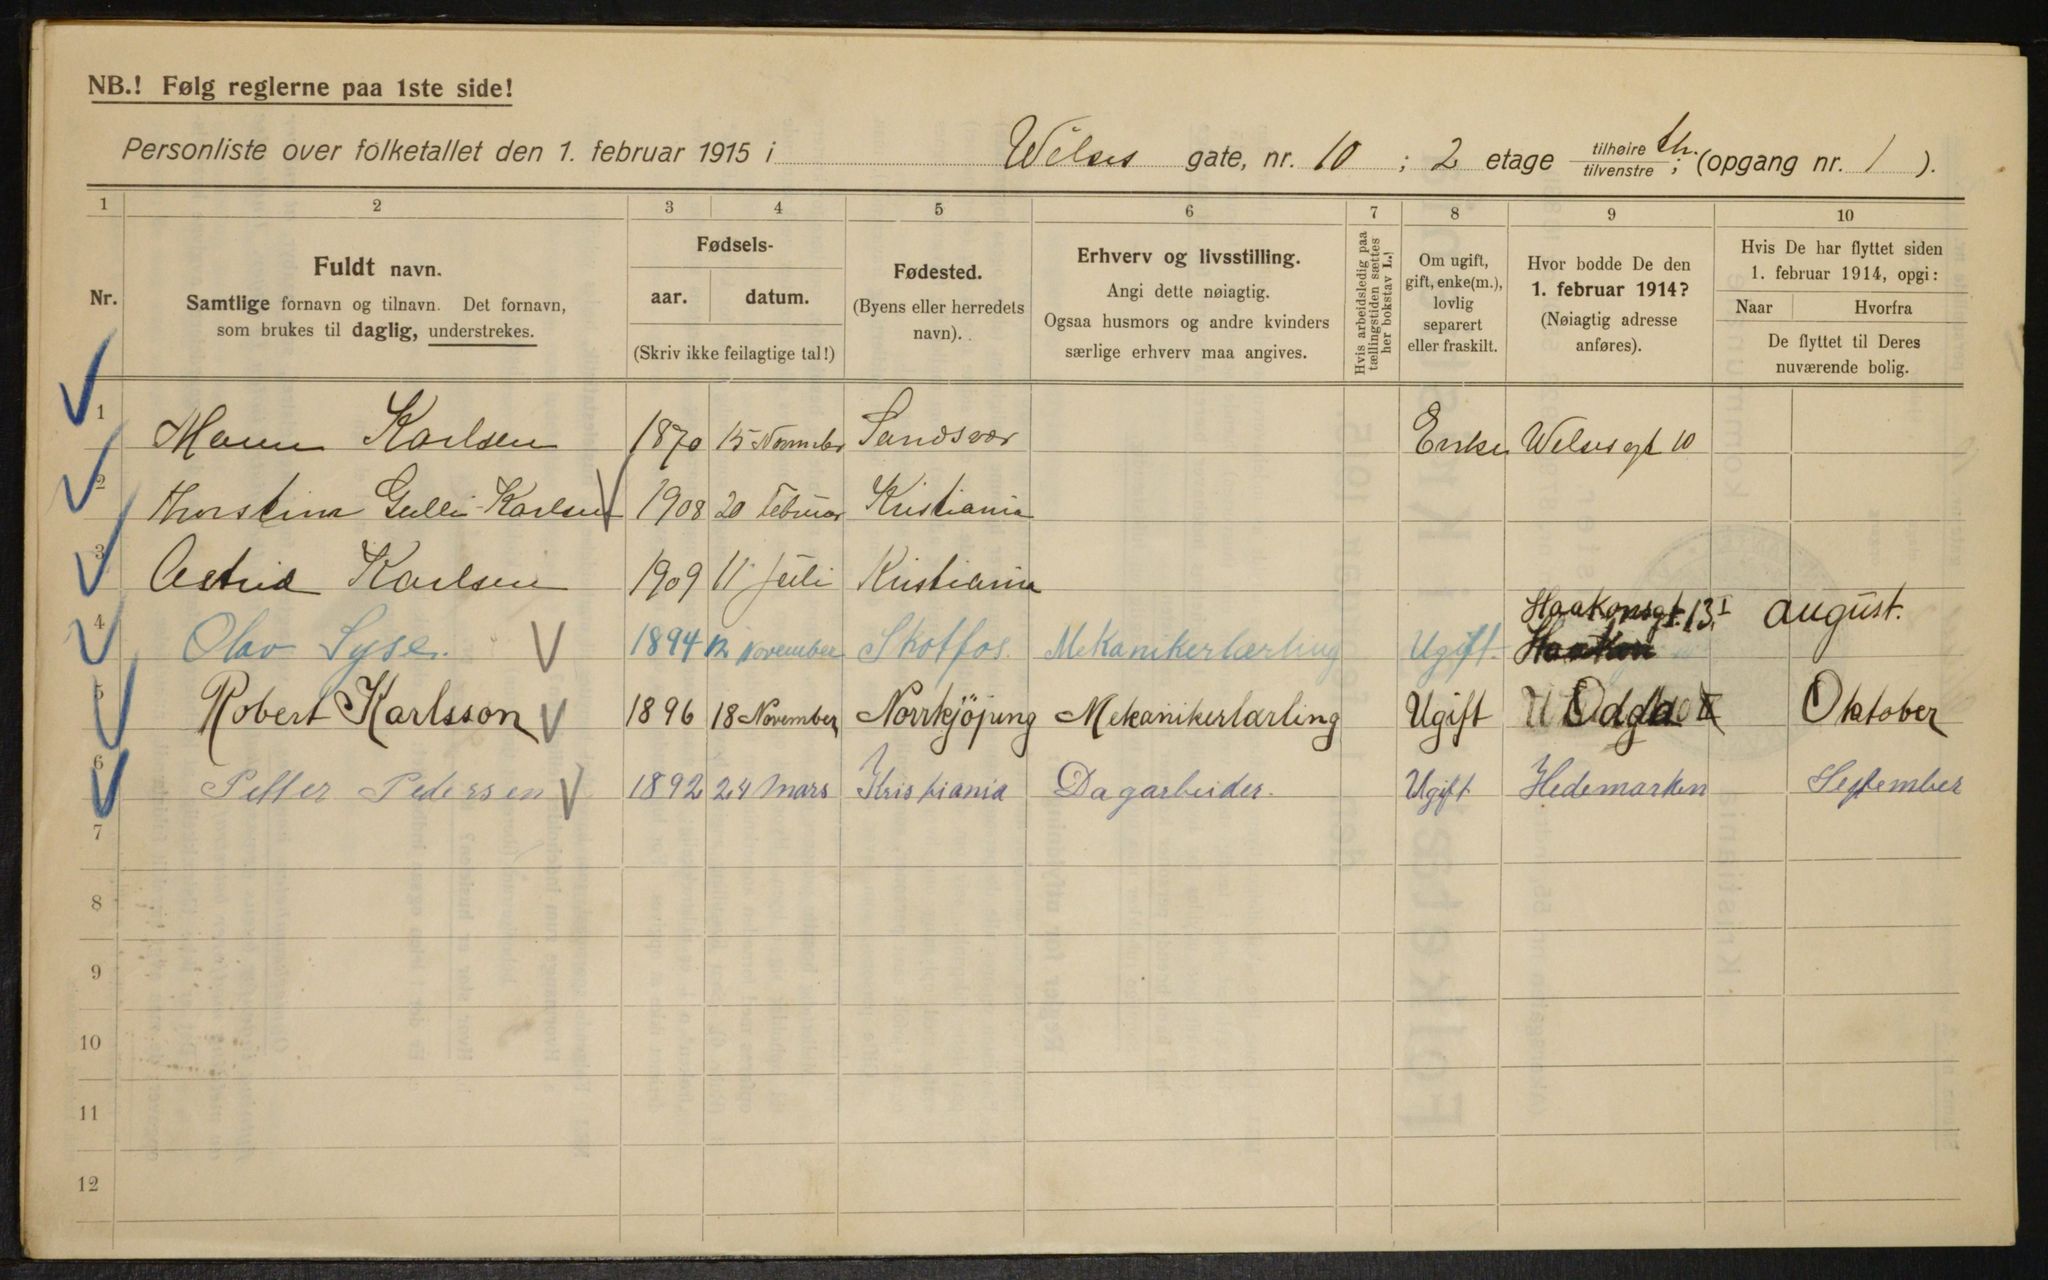 NB.! Følg reglerne paa 1ste side!
Personliste over folketallet den 1. februar 1915 i Welses gate, nr. 10; 2 etage tilhøire / tilvenstre th.; (opgang nr. 1).
1 2 3 4 5 6 7 8 9 10
Nr.
Fuldt navn.
Samtlige fornavn og tilnavn. Det fornavn,
som brukes til daglig, understrekes.
Fødsels-
aar. datum.
(Skriv ikke feilagtige tal!)
Fødested.
(Byens eller herredets
navn).
Erhverv og livsstilling.
Angi dette nøiagtig.
Ogsaa husmors og andre kvinders
særlige erhverv maa angives.
Hvis arbeidsledig paa
tællingstiden sættes
her bokstav L.)
Om ugift,
gift, enke(m.),
lovlig
separert
eller fraskilt.
Hvor bodde De den
1. februar 1914?
(Nøiagtig adresse
anføres).
Hvis De har flyttet siden
1. februar 1914, opgi:
Naar Hvorfra
De flyttet til Deres
nuværende bolig.
1 Karlsen 1870 15 November Sandsvær Enke Welsesgt 10
2 Thorstina Gulli Karlsen 1908 20 Februar Kristiania
3 Astrid Karlsen 1909 11 Juli Kristiania
4 Olav Syse. 1894 12 November Skotfos. Mekanikerlærling Ugift. Haakonsgt. 13 I august.
5 Robert Karlsson 1896 18 November Norrkjöping Mekanikerlærling Ugift Oktober
6 Petter Pedersen 1892 24 Mars Kristiania Dagarbeider. Ugift Hedemarken September
7
8
9
10
11
12